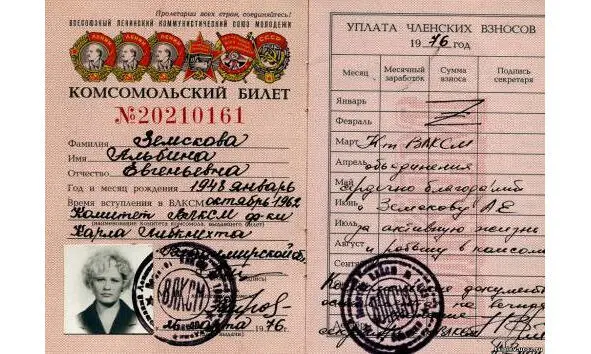 Пролетарии всех стран, соединяйтесь!
ВСЕСОЮЗНЫЙ ЛЕНИНСКИЙ КОММУНИСТИЧЕСКИЙ СОЮЗ МОЛОДЕЖИ
КОМСОМОЛЬСКИЙ БИЛЕТ
№20210161
Фамилия Земскова
Имя Альбина
Отчество Евгеньевна
Год и месяц рождения 1948 январь
Время вступления в ВЛКСМ октябрь 1962
Комитет ВЛКСМ ф-ки
(наименование комитета комсомола, выдавшего билет)
Карла Либкнехта
Владимирской об.
ВЛКСМ
марта 1976 г.
УПЛАТА ЧЛЕНСКИХ ВЗНОСОВ
1976 год
Месяц Месячный заработок Сумма взноса Подпись секретаря
Январь
Февраль
Март Кт ВЛКСМ
Апрель объединения
Май сердечно благодарит
Июнь Земскову АЕ
Июль за активную жизнь
Август и работу в комсомоле
Сентябрь
документ
ВЛКСМ
ВЛКСМ